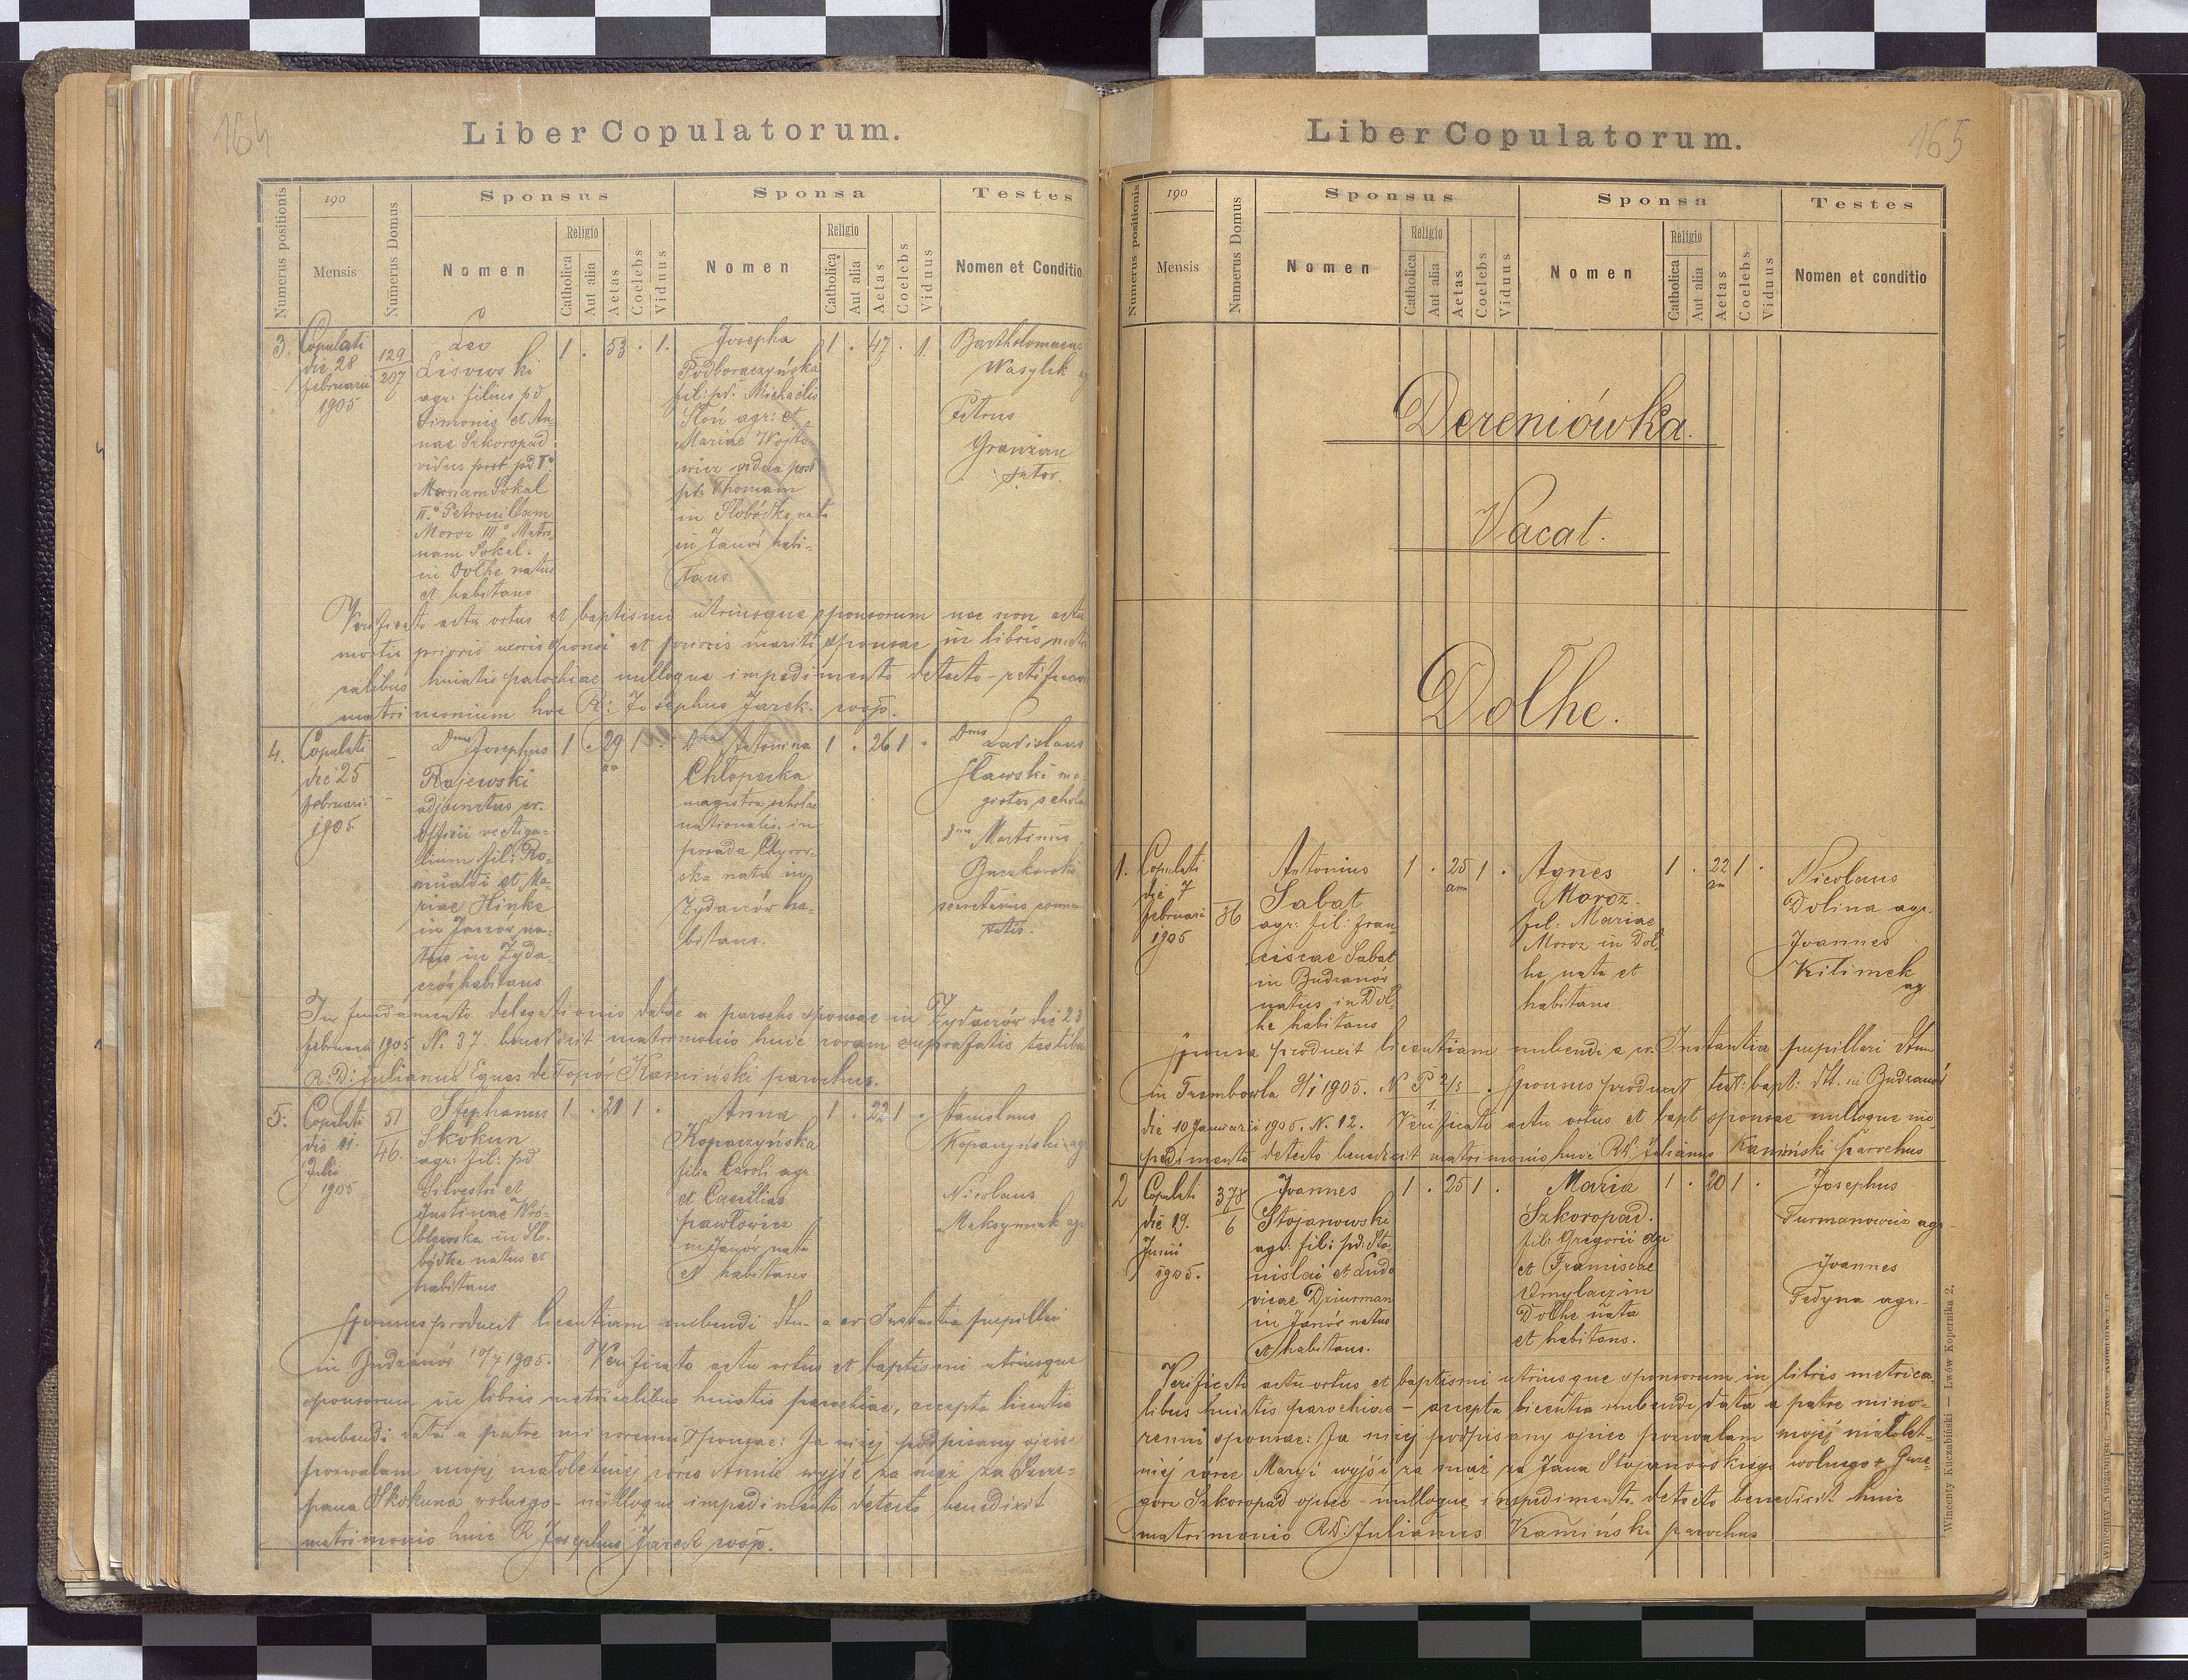 164
Liber Copulatorum.
Numerus positionis
190
Mensis
Numerus Domus
Sponsus
Nomen
Religio
Catholica
Aut alia
Aetas
Coelebs
Viduus
Sponsa
Nomen
Religio
Catholica
Aut alia
Aetas
Coelebs
Viduus
Testes
Nomen et Conditio
3.
Copulati
die 28
februarii
1905
129
207
Leo
Lisowski
agr: filius pd
Simonis et An-
nae Szkoropad
vidus post pd I°
Mariam Sokal
II.° Petronillam
Moroz III° Matro-
nam Sokal.
in Dołhe natus
et habitans
1 . 53 . 1.
Josepha
Podboraczyńska
fil: pd: Michaelis
Słoń agr: et
Mariae Wojto-
wicz vidua post
pd: Thomam
in Słobódka nata
in Janów habi-
tans
1 . 47 . 1.
Bartholomaeus
Wasylik ag
Petrus
Granzan
sutor.
Verificato actu ortus et baptismi utriusque sponsorum nec non actu
mortis prioris uxoris sponsi et prioris mariti sponsae in libris metri
calibus huiatis parochiae nulloque impedimento detecto - ratificavit
matrimonium hoc R: Josephus Jarek. coop.
4.
Copulati
die 25
februarii
1905
-
-
Dnus Josephus
Rajewski
adjunctus cr.
Officii vectiga-
lium fil: Ro-
mualdi et Ma-
riae Hinke
in Janów na-
tus in Żyda-
czów habitans
1 . 29 1 .
Dna Antonina
Chłopecka
magistra scholae
nationalis. in
posada Chyrow-
ska nata in
Żydaczów ha-
bitans.
1 . 26 1 .
Dnus Ladislaus
Iławski ma
gister schola
Dnus Martinus
Buczkowski
secretarius commu
tatis.
In fundamento delegationis datae a parocho sponsae in Żydaczów die 23
februarii 1905 N. 37. benedixit matrimonio huic coram suprafatis testibu
R: D: Julianus Eques de Topór Kamiński parochus.
5.
Copulati
die 11.
Julii
1905
51
46.
Stephanus
Skokun
agr: fil: pd
Silvestri et
Justinae Wró-
blewska in Sło-
bódka natus et
habitans
1 . 21 1 .
Anna
Kopaczyńska
filia Caroli agr.
et Caeciliae
Pawłowicz
in Janów nata
et habitans
1 . 22 1 .
Stanislaus
Kopaczyński ag
Nicolaus
Maksymiak agr
Sponsus produxit licentiam nubendi dtto a cr Instantia pupillari
in Budzanów 10/7 1905. Verificato actu ortus et baptismi utriusque
sponsorum in libris metricalibus huiatis parochiae, accepta licentia
nubendi data a patre minorenni sponsae: Ja niżej podpisany ojciec
pozwalam mojej małoletniej córce Annie wyjść za mąż za Szcze-
pana Skokuna wolnego - nulloque impedimento detecto benedixit
matrimonio huic R Josephus Jarek coop.
165
Liber Copulatorum.
Numerus positionis
190
Mensis
Numerus Domus
Sponsus
Nomen
Religio
Catholica
Aut alia
Aetas
Coelebs
Viduus
Sponsa
Nomen
Religio
Catholica
Aut alia
Aetas
Coelebs
Viduus
Testes
Nomen et conditio
Dereniówka.
Vacat.
Dołhe.
1.
Copulati
die 7
februarii
1905
86
Antonius
Sabat
agr: fil: Fran-
ciscae Sabat
in Budzanów
natus in Doł-
he habitans
1 . 25 1 .
Agnes
Moroz.
fil: Mariae
Moroz in Doł-
he nata et
habitans
1 . 22 1 .
Nicolaus
Dolina agr.
Joannes
Kilimek
ag
Sponsa produxit licentiam nubendi a cr. Instantia pupillari dtum
in Trembowla 3/1 1905. N P 2/5. Sponsus produxit test: bapt: dtt. in Budzanów
die 10 Januarii 1905. N. 12. Verificato actu ortus et bapt sponsae nulloque im-
pedimento detecto benedixit matrimonio huic RD. Julianus Kamiński parochus
2
Copulati
die 19.
Junii
1905.
378
6
Joannes
Stojanowski
agr: fil: pd: Sta-
nislai et Ludo
vicae Dziurman
in Janów natus
et habitans.
1 . 25 1 .
Maria
Szkoropad.
fil: Gregorii agr
et Franciscae
Smylacz in
Dołhe nata
et habitans.
1 . 20 1 .
Josephus
Furmanowicz agr.
Joannes
Fedyna agr.
Verificato actu ortus et baptismi utriusque sponsorum in libris metrica-
libus huiatis parochiae - accepta licentia nubendi data a patre mino-
renni sponsae: Ja niżej podpisany ojciec pozwalam mojej małolet-
niej córce Maryi wyjść za mąż za Jana Stojanowskiego wolnego + Grze-
gorz Szkoropad ojciec - nulloque impedimento detecto benedixit huic
matrimonio RD. Julianus Kamiński parochus
Wincenty Kuczabiński — Lwów Kopernika 2.